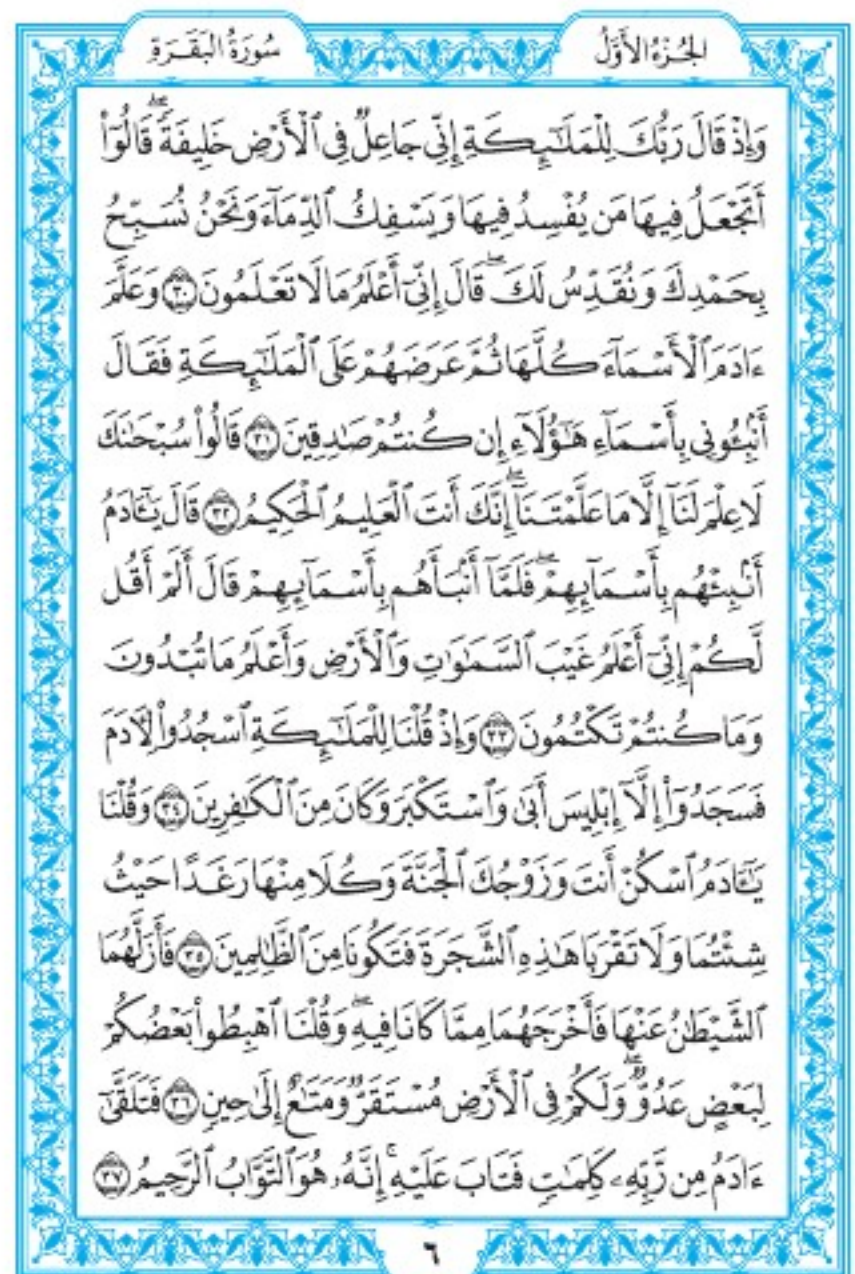 الجُزْءُ الأَوَّلُ
سُورَةُ البَقَرَةِ
وَإِذْ قَالَ رَبُّكَ لِلْمَلَٰٓئِكَةِ إِنِّي جَاعِلٌ فِي ٱلْأَرْضِ خَلِيفَةًۖ قَالُوٓا۟
أَتَجْعَلُ فِيهَا مَن يُفْسِدُ فِيهَا وَيَسْفِكُ ٱلدِّمَآءَ وَنَحْنُ نُسَبِّحُ
بِحَمْدِكَ وَنُقَدِّسُ لَكَۖ قَالَ إِنِّيٓ أَعْلَمُ مَا لَا تَعْلَمُونَ ٣٠ وَعَلَّمَ
ءَادَمَ ٱلْأَسْمَآءَ كُلَّهَا ثُمَّ عَرَضَهُمْ عَلَى ٱلْمَلَٰٓئِكَةِ فَقَالَ
أَنۢبِـُٔونِي بِأَسْمَآءِ هَٰٓؤُلَآءِ إِن كُنتُمْ صَٰدِقِينَ ٣١ قَالُوا۟ سُبْحَٰنَكَ
لَا عِلْمَ لَنَآ إِلَّا مَا عَلَّمْتَنَآۖ إِنَّكَ أَنتَ ٱلْعَلِيمُ ٱلْحَكِيمُ ٣٢ قَالَ يَٰٓـَٔادَمُ
أَنۢبِئْهُم بِأَسْمَآئِهِمْۖ فَلَمَّآ أَنۢبَأَهُم بِأَسْمَآئِهِمْ قَالَ أَلَمْ أَقُل
لَّكُمْ إِنِّيٓ أَعْلَمُ غَيْبَ ٱلسَّمَٰوَٰتِ وَٱلْأَرْضِ وَأَعْلَمُ مَا تُبْدُونَ
وَمَا كُنتُمْ تَكْتُمُونَ ٣٣ وَإِذْ قُلْنَا لِلْمَلَٰٓئِكَةِ ٱسْجُدُوا۟ لِءَادَمَ
فَسَجَدُوٓا۟ إِلَّآ إِبْلِيسَ أَبَىٰ وَٱسْتَكْبَرَ وَكَانَ مِنَ ٱلْكَٰفِرِينَ ٣٤ وَقُلْنَا
يَٰٓـَٔادَمُ ٱسْكُنْ أَنتَ وَزَوْجُكَ ٱلْجَنَّةَ وَكُلَا مِنْهَا رَغَدًا حَيْثُ
شِئْتُمَا وَلَا تَقْرَبَا هَٰذِهِ ٱلشَّجَرَةَ فَتَكُونَا مِنَ ٱلظَّٰلِمِينَ ٣٥ فَأَزَلَّهُمَا
ٱلشَّيْطَٰنُ عَنْهَا فَأَخْرَجَهُمَا مِمَّا كَانَا فِيهِۖ وَقُلْنَا ٱهْبِطُوا۟ بَعْضُكُمْ
لِبَعْضٍ عَدُوٌّۖ وَلَكُمْ فِي ٱلْأَرْضِ مُسْتَقَرٌّ وَمَتَٰعٌ إِلَىٰ حِينٍ ٣٦ فَتَلَقَّىٰٓ
ءَادَمُ مِن رَّبِّهِۦ كَلِمَٰتٍ فَتَابَ عَلَيْهِۚ إِنَّهُۥ هُوَ ٱلتَّوَّابُ ٱلرَّحِيمُ ٣٧
٦